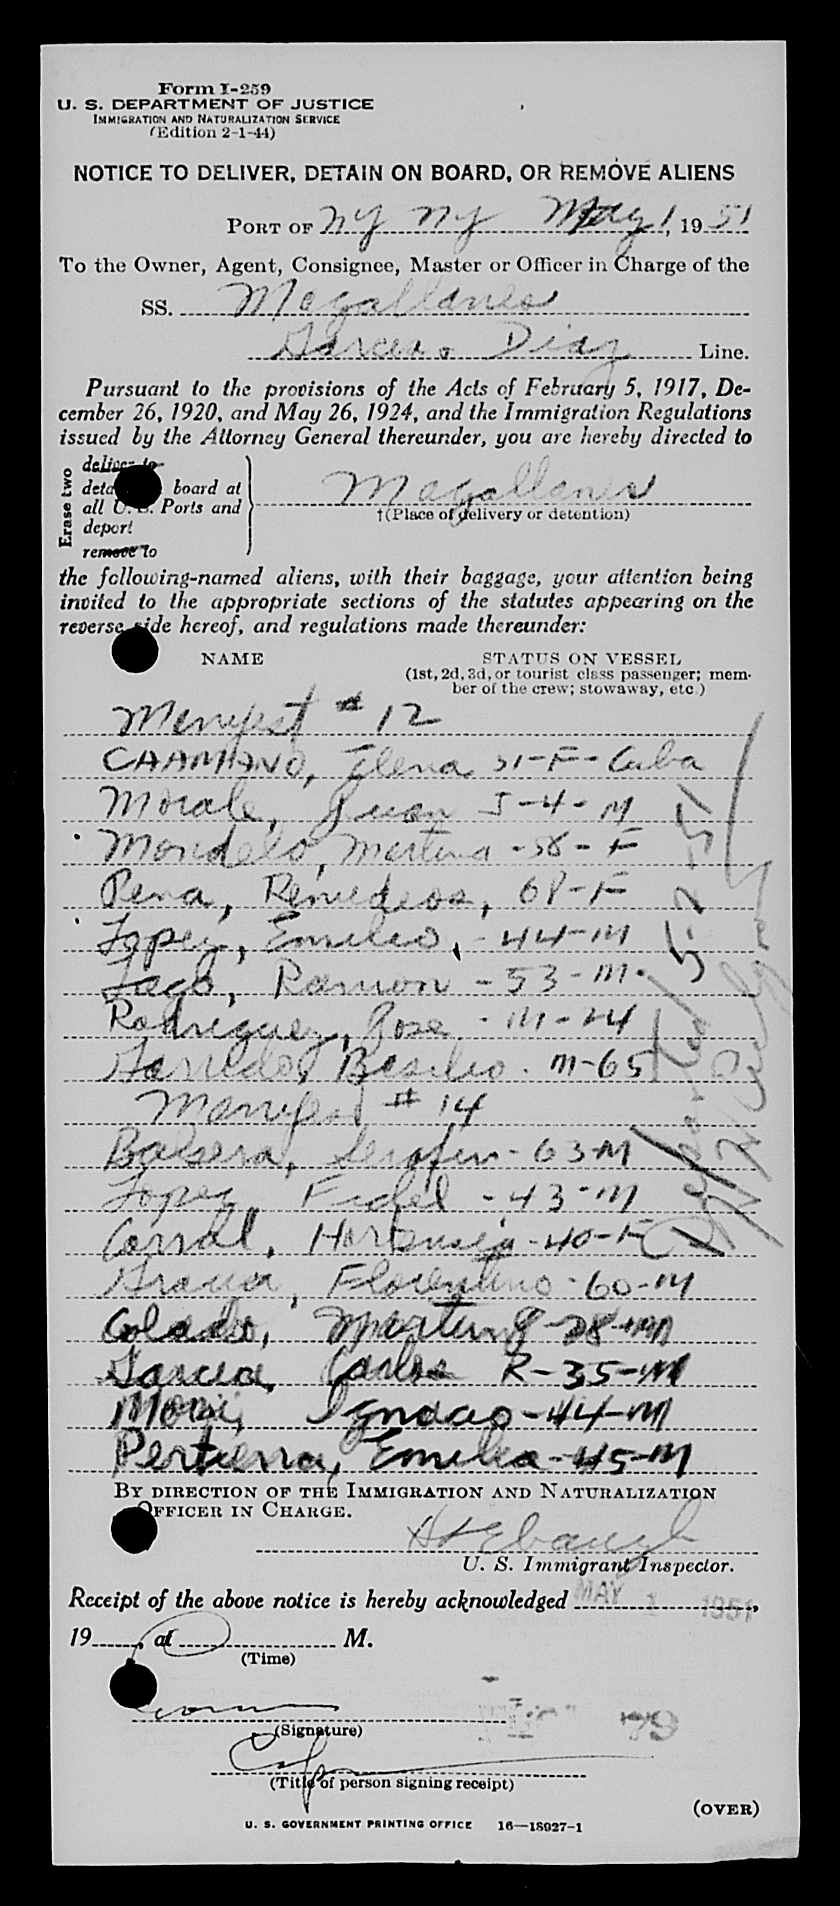 Form I-259
U. S. DEPARTMENT OF JUSTICE
IMMIGRATION AND NATURALIZATION SERVICE
(Edition 2-1-44)
NOTICE TO DELIVER, DETAIN ON BOARD, OR REMOVE ALIENS
PORT OF NY NY May 1, 19 51
To the Owner, Agent, Consignee, Master or Officer in Charge of the
SS. Magallanes
Garcia Diaz Line.
Pursuant to the provisions of the Acts of February 5, 1917, De-
cember 26, 1920, and May 26, 1924, and the Immigration Regulations
issued by the Attorney General thereunder, you are hereby directed to
Erase two
deliver to
board at
all U. S. Ports and
deport
remove to
Magallanes
†(Place of delivery or detention)
the following-named aliens, with their baggage, your attention being
invited to the appropriate sections of the statutes appearing on the
reverse side hereof, and regulations made thereunder:
NAME STATUS ON VESSEL
(1st, 2d, 3d, or tourist class passenger; mem-
ber of the crew; stowaway, etc.)
Manifest # 12
CAAMANO, Elena 31-F-Cuba
Morale, Juan 5-4-M
Mondelo, Martina -58-F
Pena, Remedeos, 68-F
Lopez, Emilio, -44-M
Lago, Ramon -53-M.
Rodriguez, Jose -M-24
Basilio. M-65
Manifest # 14
Balsera, Serafin-63-M
Lopez Fidel -43-M
Corral, Hortensia-40-F
Florentino-60-M
Colado, -28-M
Garcia, Carlos R-35-M
Ignacio-44-M
Pertierra, Emilia-45-M
5-2-51
BY DIRECTION OF THE IMMIGRATION AND NATURALIZATION
OFFICER IN CHARGE.
U. S. Immigrant Inspector.
Receipt of the above notice is hereby acknowledged MAY 1 1951,
19, at M.
(Time)
(Signature)
(Title of person signing receipt)
79
(OVER)
U. S. GOVERNMENT PRINTING OFFICE 16—18927-1